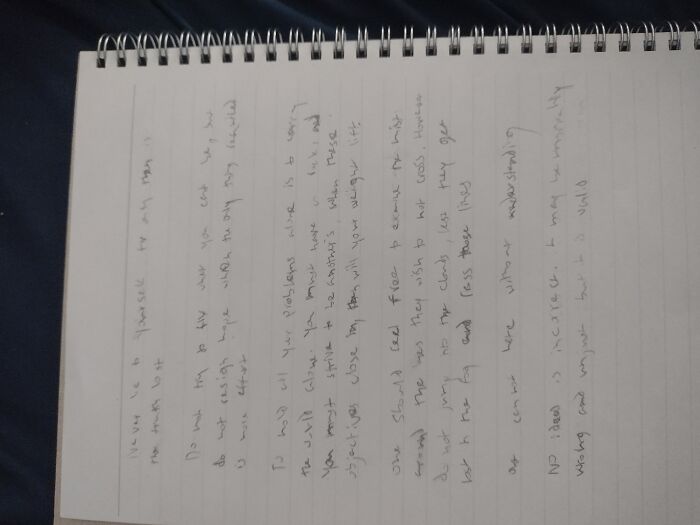 Never lie to yourself for only then is
the truth lost
Do not try to fix what you cant be, but
do not resign hope when the only thing required
is more effort
To hold all your problems alone is to carry
the world alone. You must have a rock, and
you must strive to be another's, when these
objectives close by, then will your weight lift.
one should feel free to examine the mist
around the lines they wish to not cross. However
do not jump into the clouds, lest they get
lost in the fog and pass those lines
one cannot hate without understanding
NO idea is incorrect. It may be morally
wrong and unjust but it is valid